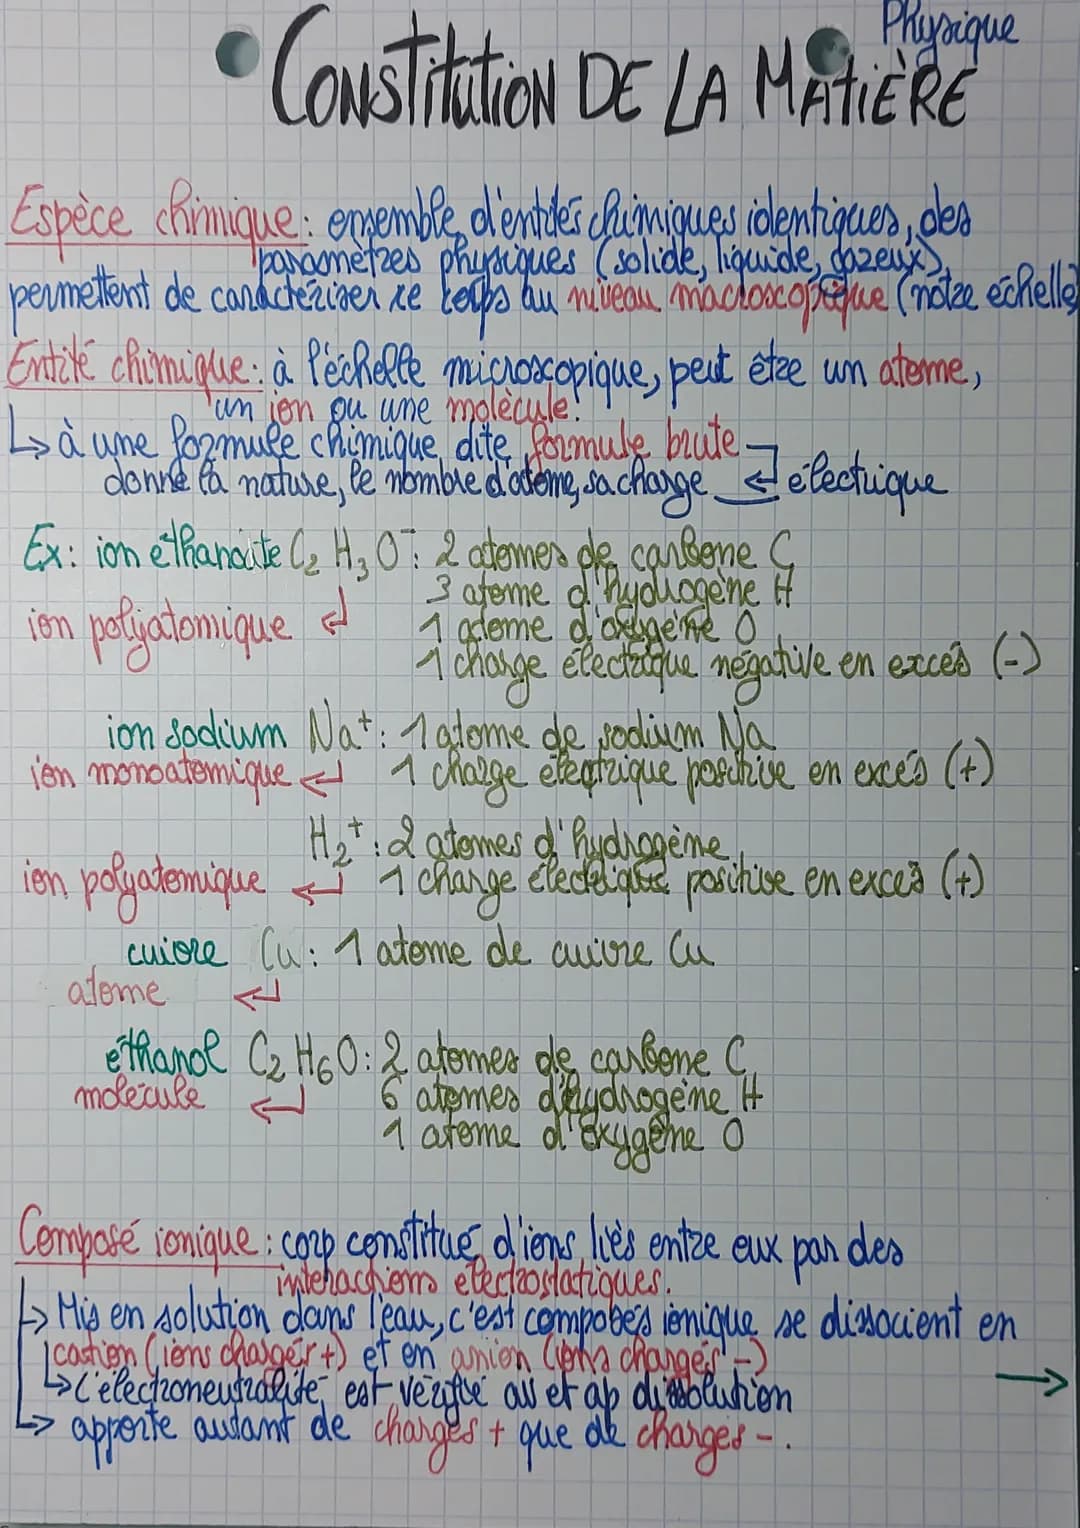 Physique
CONSTITUTION DE LA MATIÈRE
Espèce chimique : ensemble d'entités chimiques identiques, des
paramètres physiques (solide, liquide, gazeux)
permettent de caractériser ce corps au niveau macroscopique (notre échelle)
Entité chimique : à l'échelle microscopique, peut être un atome,
un ion ou une molécule.
↳ à une formule chimique dite formule brute
donne la nature, le nombre d'atome, sa charge ↵ électrique
Ex : ion éthanoate C₂ H₃ O⁻ : 2 atomes de carbone C
3 atome d'hydrogène H
ion polyatomique ↵ 1 atome d'oxygène O
1 charge électrique négative en excès (-)
ion sodium Na⁺ : 1 atome de sodium Na
ion monoatomique ↵ 1 charge électrique positive en excès (+)
H₂⁺ : 2 atomes d'hydrogène
ion polyatomique ↵ 1 charge électrique positive en excès (+)
cuivre Cu : 1 atome de cuivre Cu
atome ↵
éthanol C₂ H₆ O : 2 atomes de carbone C
molécule ↵ 6 atomes d'hydrogène H
1 atome d'oxygène O
Composé ionique : corp constitué d'ions liés entre eux par des
interactions électrostatiques.
↳ Mis en solution dans l'eau, c'est composés ionique se dissocient en
cation (ions charger +) et en anion (ions chargés -)
↳ L'électroneutralité est vérifié av et ap dissolution →
↳ apporte autant de charges + que de charges -.